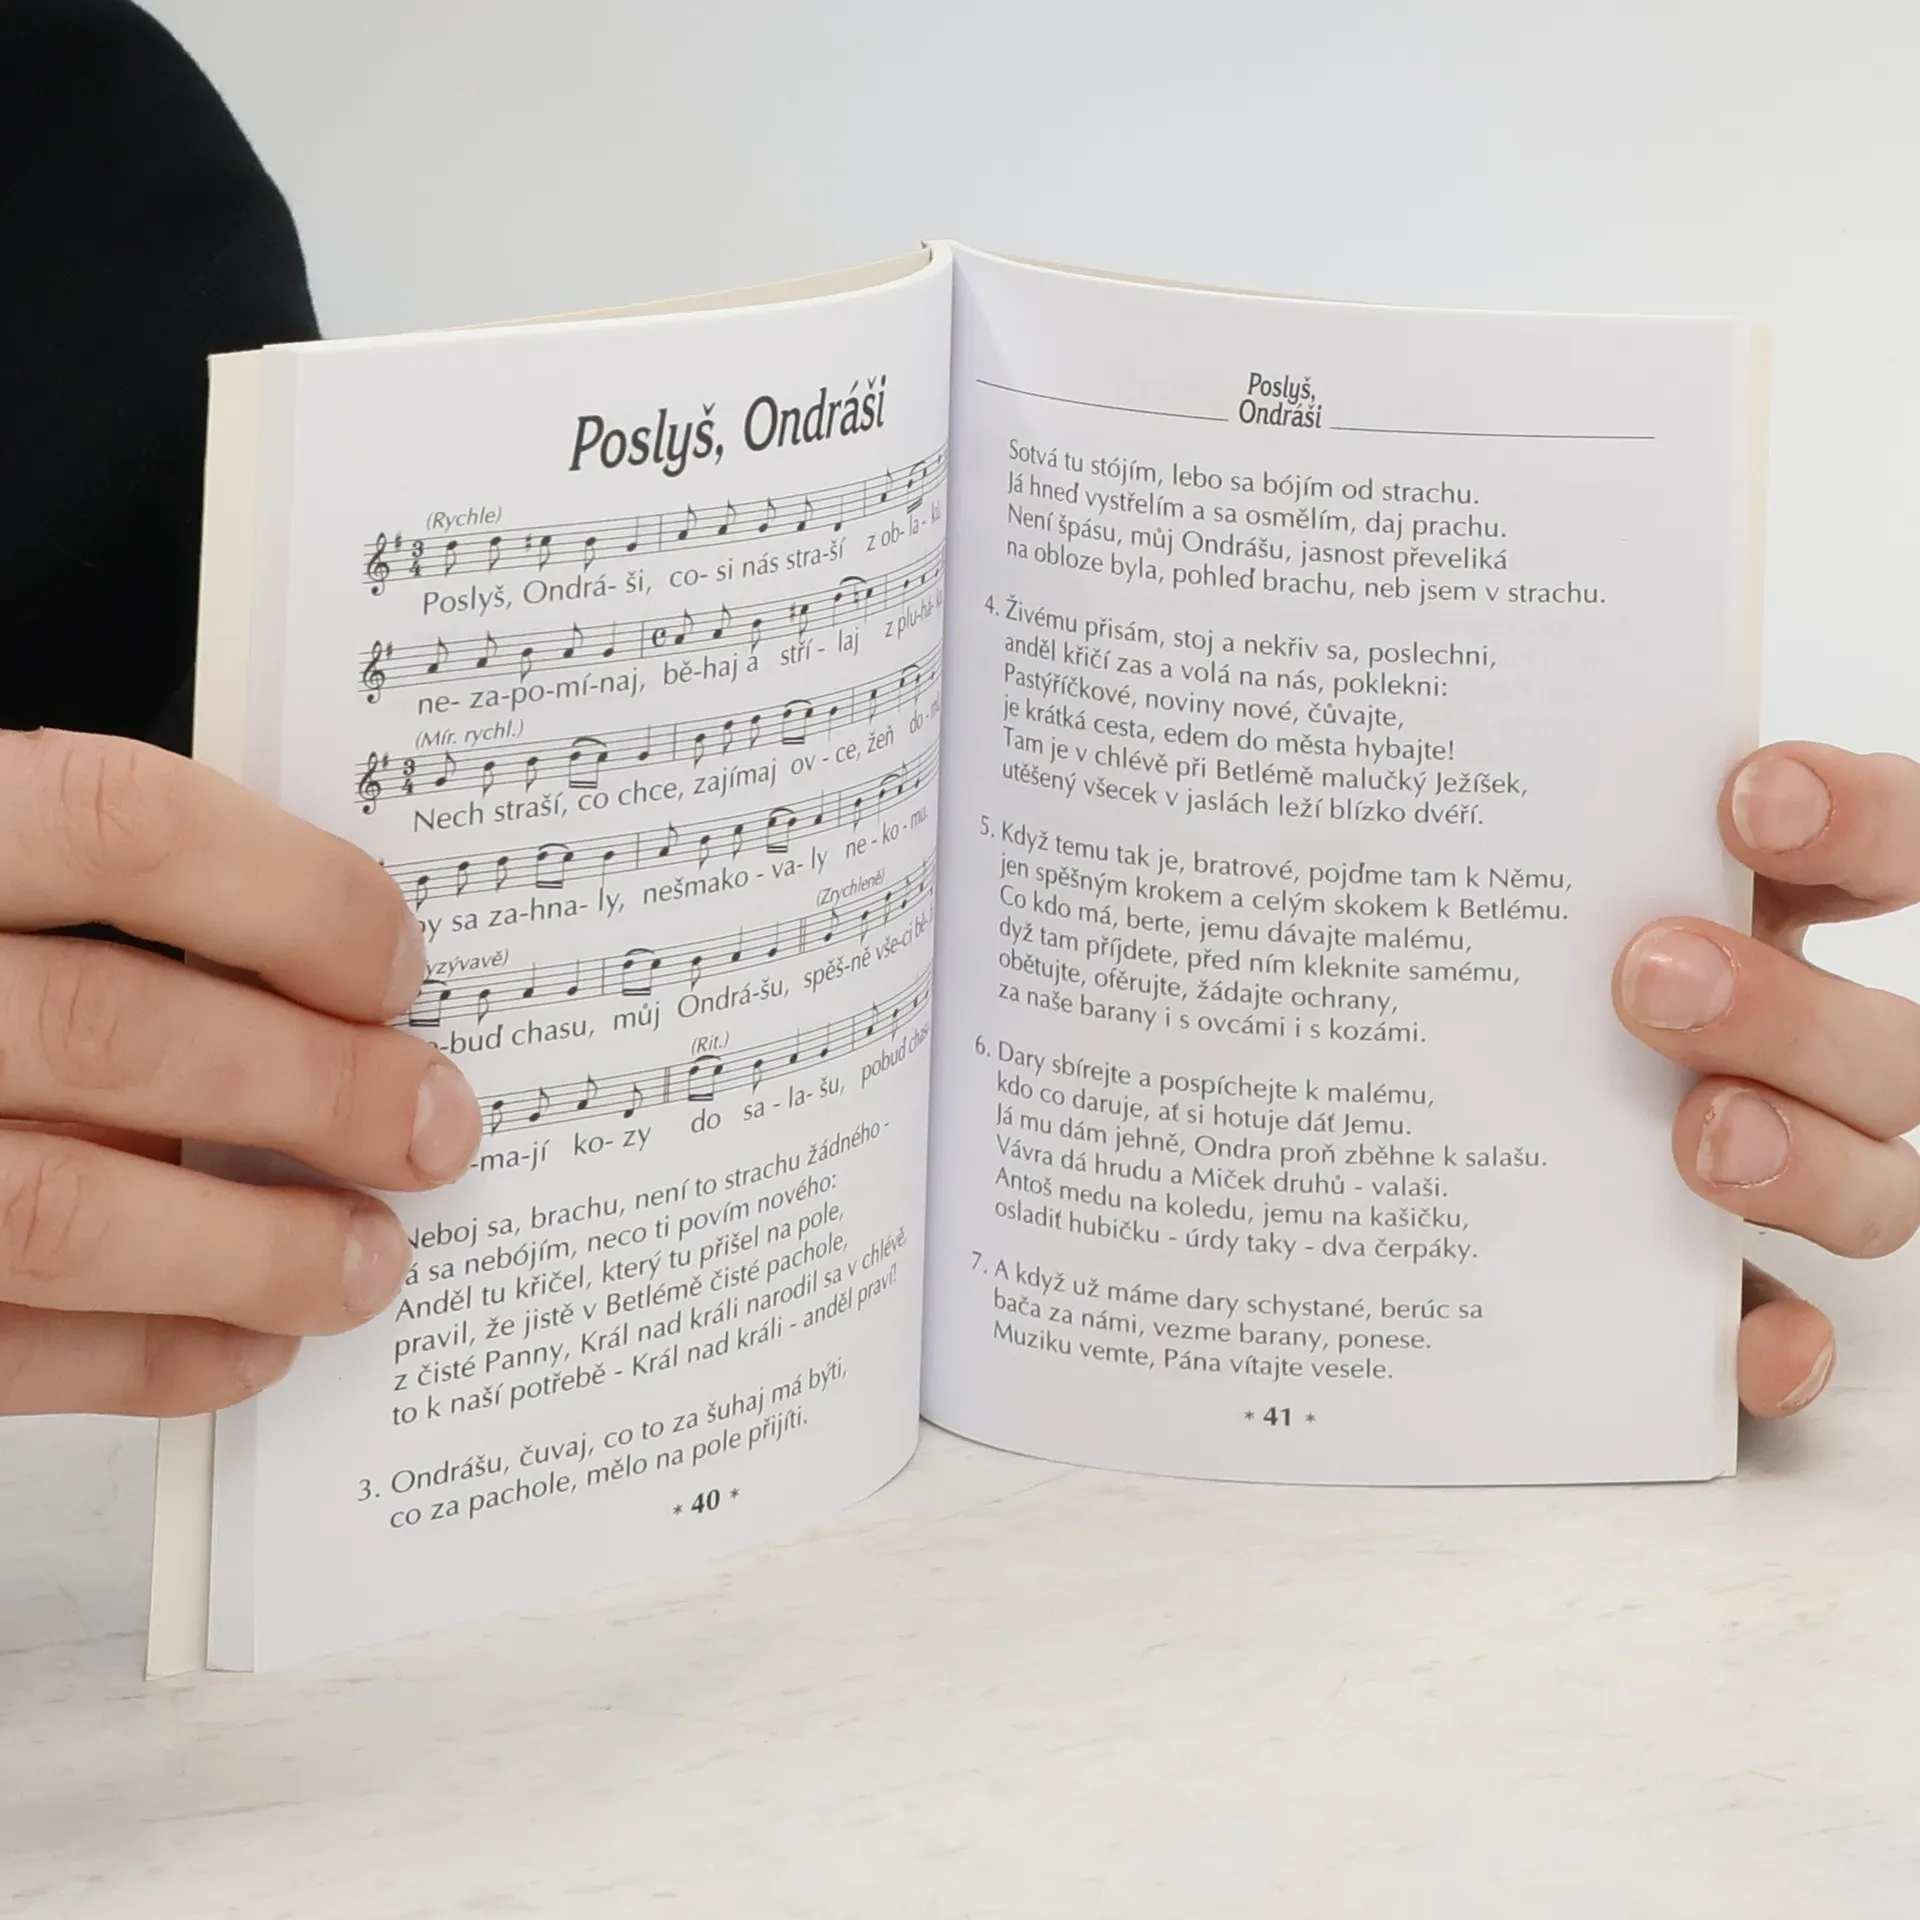 Poslyš, Ondráši
(Rychle)
Poslyš, Ondrá- ši, co- si nás stra-ší z ob- la- ků
ne- za-po-mí-naj, bě-haj a stří - laj z plu-há-
(Mír. rychl.)
Nech straší, co chce, zajímaj ov - ce, žeň do -
sa za-hna- ly, nešmako - va- ly ne - ko - mu.
(Zrychleně)
-buď chasu, můj Ondrá-šu, spěš-ně vše-ci
(Rit.)
-ma-jí ko- zy do sa - la- šu, pobuď
Neboj sa, brachu, není to strachu žádného -
sa nebójím, neco ti povím nového:
Anděl tu křičel, který tu přišel na pole,
pravil, že jistě v Betlémě čisté pachole,
z čisté Panny, Král nad králi narodil sa v chlévě,
to k naší potřebě - Král nad králi - anděl praví!
3. Ondrášu, čuvaj, co to za šuhaj má býti,
co za pachole, mělo na pole přijíti.
* 40 *
Poslyš,
Ondráši
Sotvá tu stójím, lebo sa bójím od strachu.
Já hneď vystřelím a sa osmělím, daj prachu.
Není špásu, můj Ondrášu, jasnost převeliká
na obloze byla, pohleď brachu, neb jsem v strachu.
4. Živému přisám, stoj a nekřiv sa, poslechni,
anděl křičí zas a volá na nás, poklekni:
Pastýříčkové, noviny nové, čůvajte,
je krátká cesta, edem do města hybajte!
Tam je v chlévě při Betlémě malučký Ježíšek,
utěšený všecek v jaslách leží blízko dvéří.
5. Když temu tak je, bratrové, pojďme tam k Němu,
jen spěšným krokem a celým skokem k Betlému.
Co kdo má, berte, jemu dávajte malému,
dyž tam příjdete, před ním kleknite samému,
obětujte, ofěrujte, žádajte ochrany,
za naše barany i s ovcámi i s kozámi.
6. Dary sbírejte a pospíchejte k malému,
kdo co daruje, ať si hotuje dáť Jemu.
Já mu dám jehně, Ondra proň zběhne k salašu.
Vávra dá hrudu a Miček druhů - valaši.
Antoš medu na koledu, jemu na kašičku,
osladiť hubičku - úrdy taky - dva čerpáky.
7. A když už máme dary schystané, berúc sa
bača za námi, vezme barany, ponese.
Muziku vemte, Pána vítajte vesele.
* 41 *